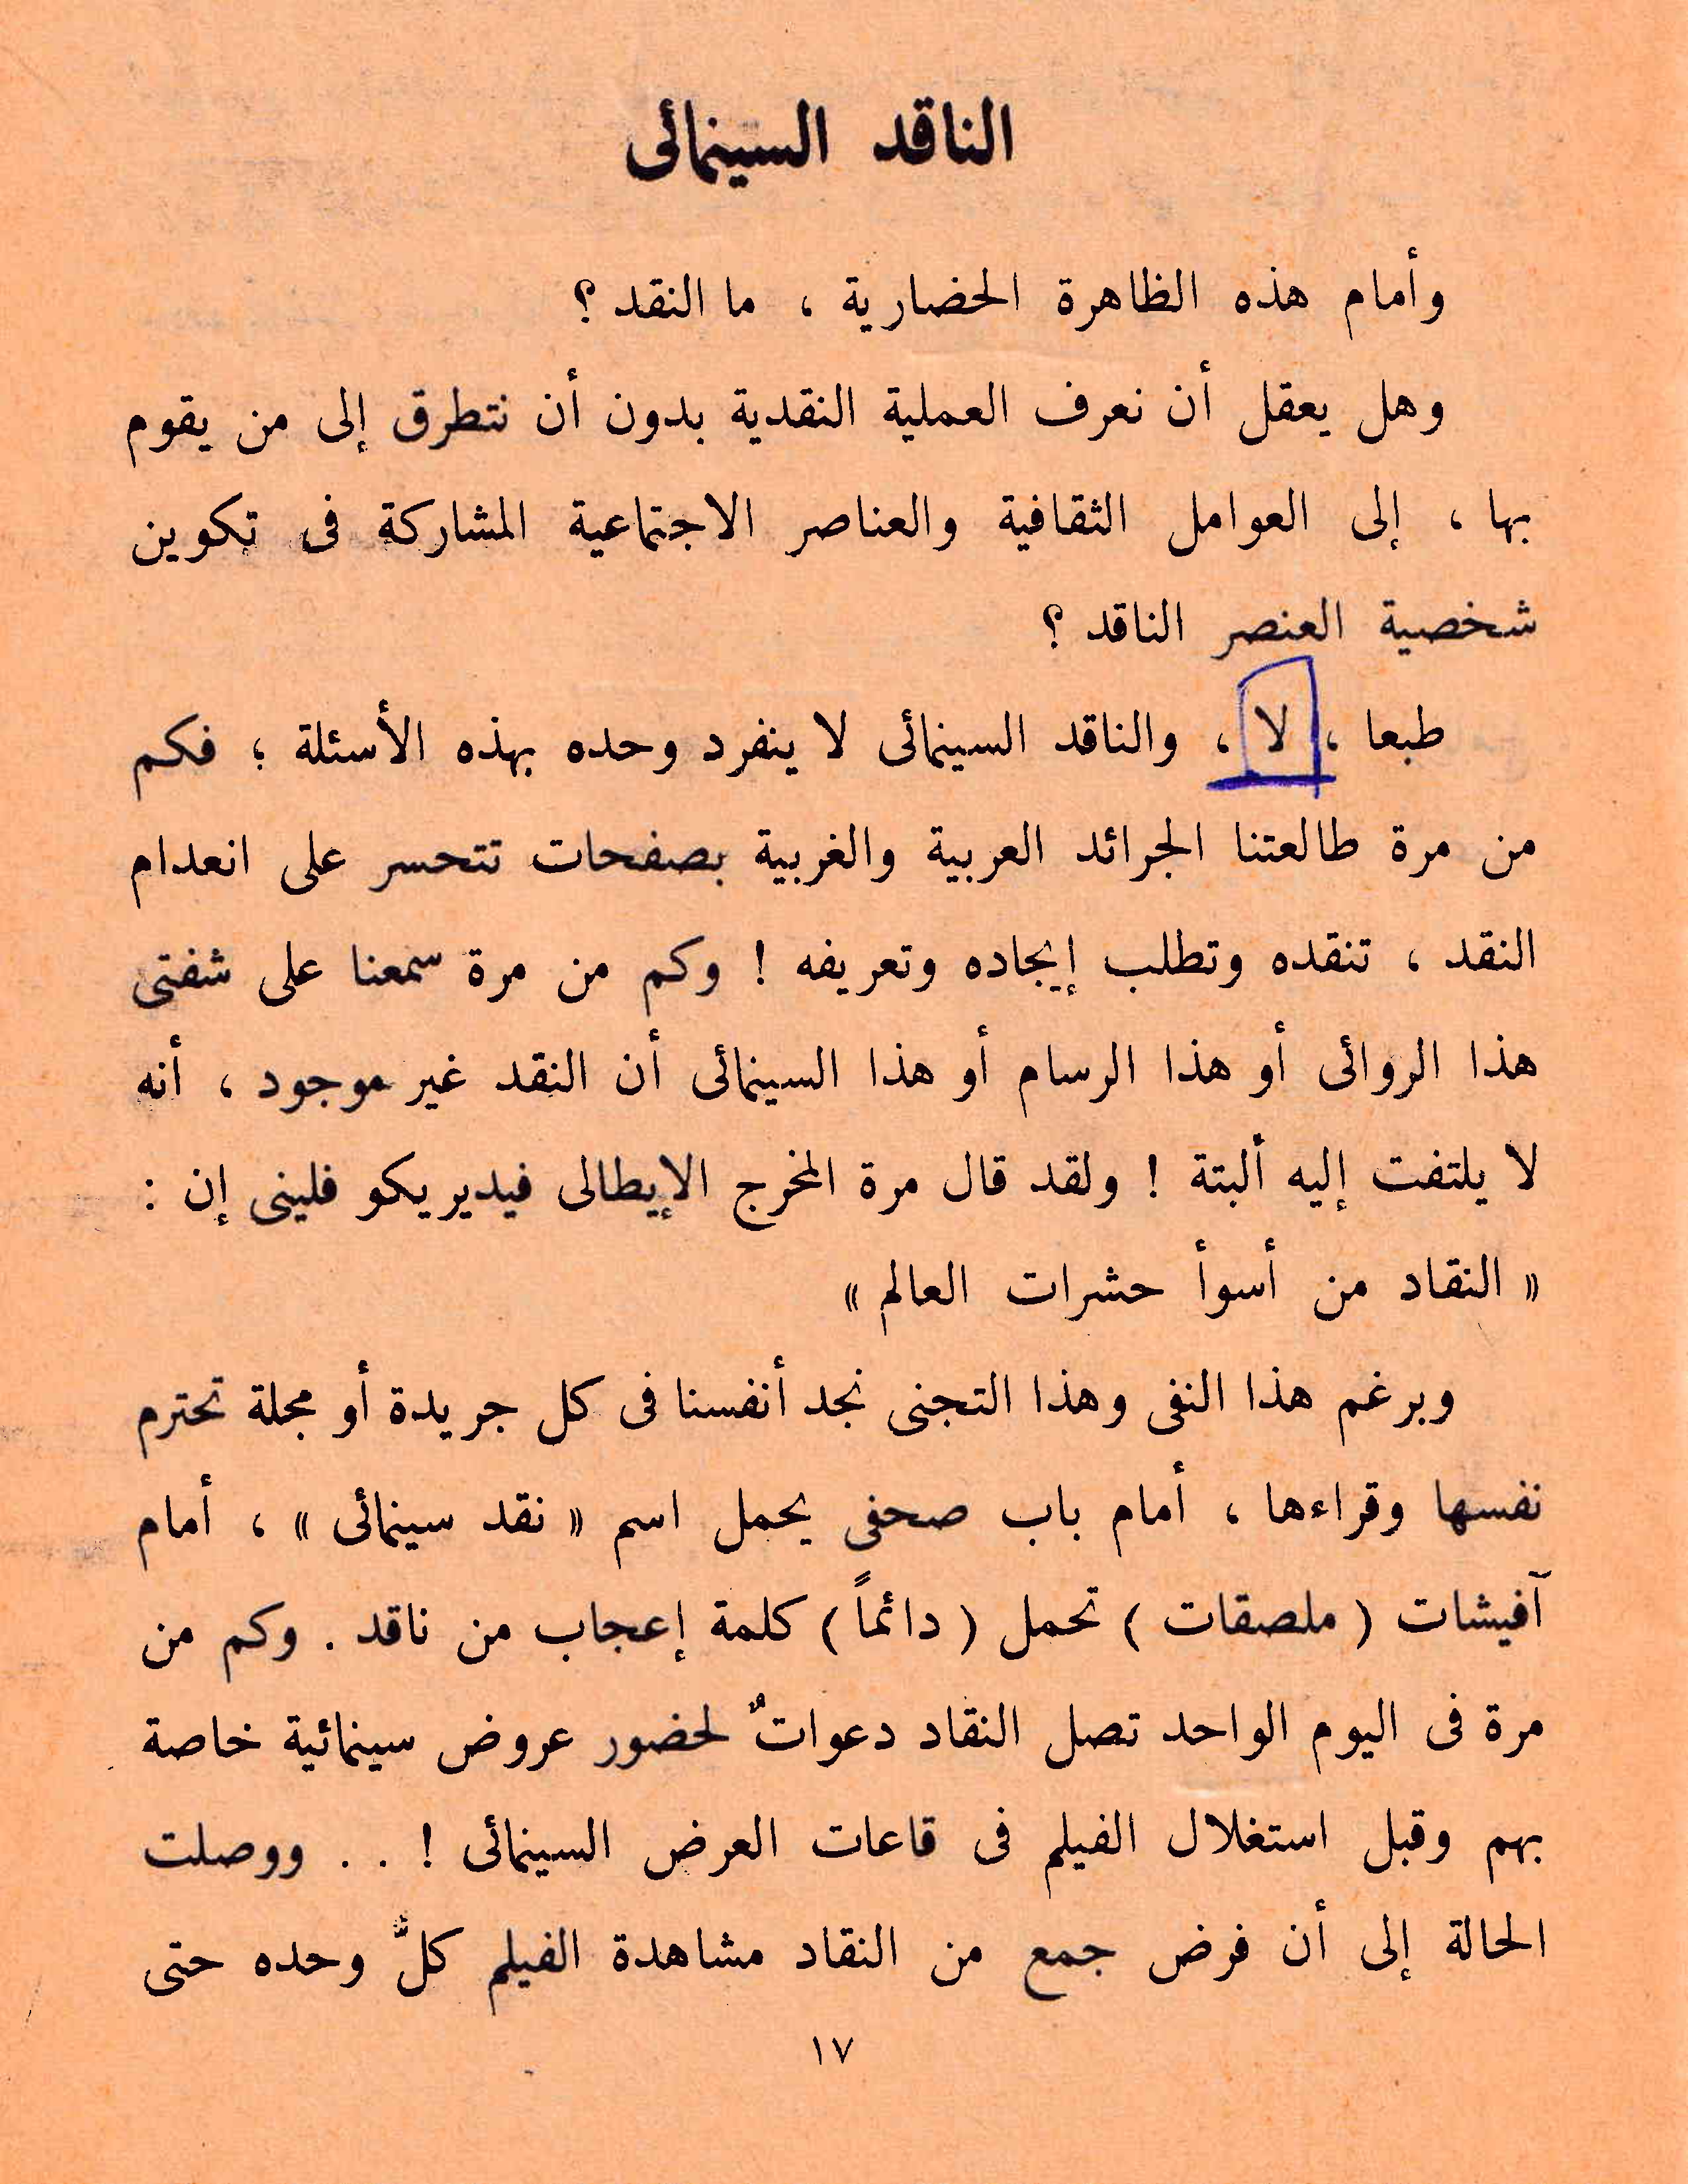 الناقد السينمائى
وأمام هذه الظاهرة الحضارية ، ما النقد ؟
وهل يعقل أن نعرف العملية النقدية بدون أن نتطرق إلى من يقوم
بها ، إلى العوامل الثقافية والعناصر الاجتماعية المشاركة فى تكوين
شخصية العنصر الناقد ؟
طبعا ، لا ، والناقد السينمائى لا ينفرد وحده بهذه الأسئلة ؛ فكم
من مرة طالعتنا الجرائد العربية والغربية بصفحات تتحسر على انعدام
النقد ، تنقده وتطلب إيجاده وتعريفه ! وكم من مرة سمعنا على شفتى
هذا الروائى أو هذا الرسام أو هذا السينمائى أن النقد غير موجود ، أنه
لا يلتفت إليه ألبتة ! ولقد قال مرة المخرج الإيطالى فيديريكو فلينى إن :
« النقاد من أسوأ حشرات العالم »
وبرغم هذا النفى وهذا التجنى نجد أنفسنا فى كل جريدة أو مجلة تحترم
نفسها وقراءها ، أمام باب صحفى يحمل اسم « نقد سينمائى » ، أمام
آفيشات ( ملصقات ) تحمل ( دائماً ) كلمة إعجاب من ناقد . وكم من
مرة فى اليوم الواحد تصل النقاد دعواتٌ لحضور عروض سينمائية خاصة
بهم وقبل استغلال الفيلم فى قاعات العرض السينمائى ! . . ووصلت
الحالة إلى أن فرض جمع من النقاد مشاهدة الفيلم كلٌّ وحده حتى
١٧